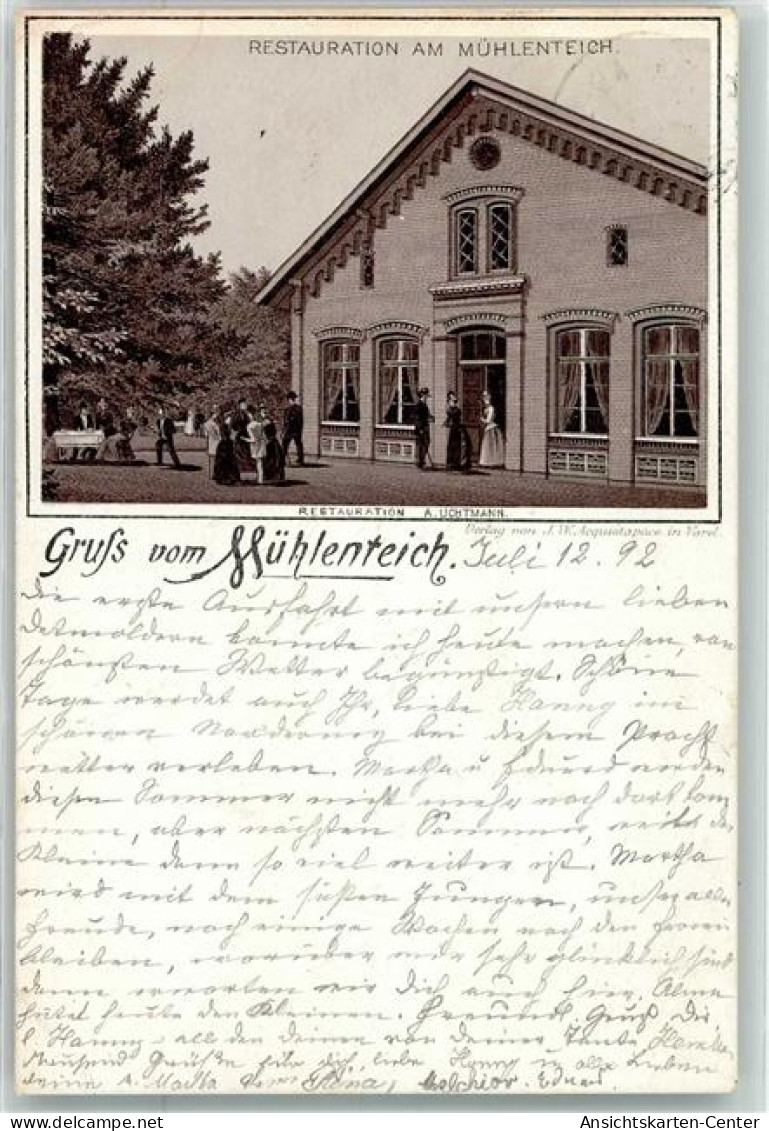 RESTAURATION AM MÜHLENTEICH.
RESTAURATION A. LICHTMANN.
Verlag von J. W. Acquistapace in Varel.
Gruß vom Mühlenteich. Juli 12. 92
Die erste Ausfahrt mit unsern lieben
Detmoldern konnte ich heute machen, von
schönsten Wetter begünstigt. Schöne
Tage werdet auch Ihr, liebe Hanny im
schönen Norderney bei diesem Pracht
wetter verleben. Martha u Eduard werden
diesen Sommer nicht mehr nach dort kom
men, aber nächsten Sommer, weil die
Kleine dann so viel weiter ist. Martha
wird mit dem süßen Jungen, unser aller
Freude, noch einige Wochen nach den Ferien
bleiben, worüber wir sehr glücklich sind
dann erwarten wir Dich auch hier. Alma
hütet heute den Kleinen. Freundl. Gruß Dir
l. Hanny u all den deinen von deiner Tante
Tausend Grüße für dich, liebe Hanny u alle Lieben
deine Martha Melchior. Eduard
Ansichtskarten-Center